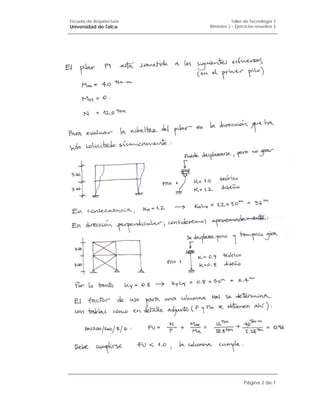 Escuela de Arquitectura
Universidad de Talca
Taller de Tecnología 3
Bimestre 2 – Ejercicios resueltos 3
El pilar M está sometido a los siguientes esfuerzos
(en el primer piso)
Mxx = 4.0 Ton·m
Myy = 0.
N = 12.0 Ton
Para evaluar la esbeltez del pilar en la dirección que ha
sido solicitado sísmicamente:
Puede desplazarse, pero no girar
3.00
3.00
Pilar
K = 1.0 teórico
K = 1.2 diseño
En consecuencia, Kx = 1.2 → KxLx = 1.2 x 3.0 m = 3.6 m
En dirección perpendicular, consideremos aproximadamente:
Se desplaza poco y tampoco gira
3.00
3.00
Pilar
K = 0.7 teórico
K = 0.8 diseño
Por lo tanto Ky = 0.8 → KyLy = 0.8 x 3.0 m = 2.4 m
El factor de uso para una columna H25 se determina
con tablas como en detalle adjunto (P y Mx se obtienen ahí):
FU = N/P + Mxx/Mx = 12 Ton + 4.0 Ton·m = 0.96
Debe cumplirse FU < 1.0, la columna cumple.
Página 2 de 7